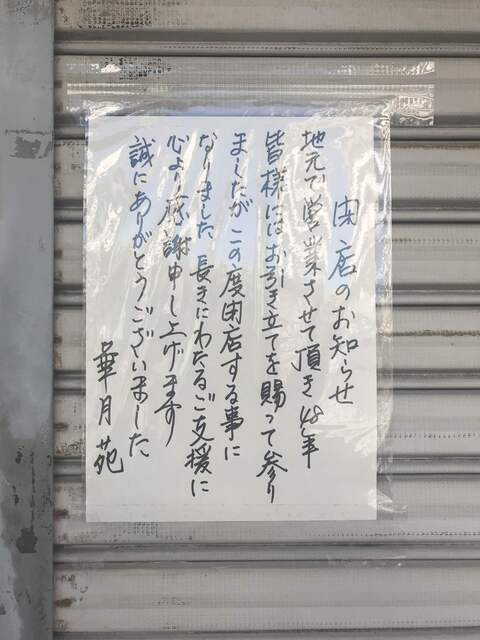 閉店のお知らせ
地元で営業させて頂き48年
皆様にはお引き立てを賜って参り
ましたがこの度閉店する事に
なりました、長きにわたるご支援に
心より感謝申し上げます
誠にありがとうございました、
華月苑